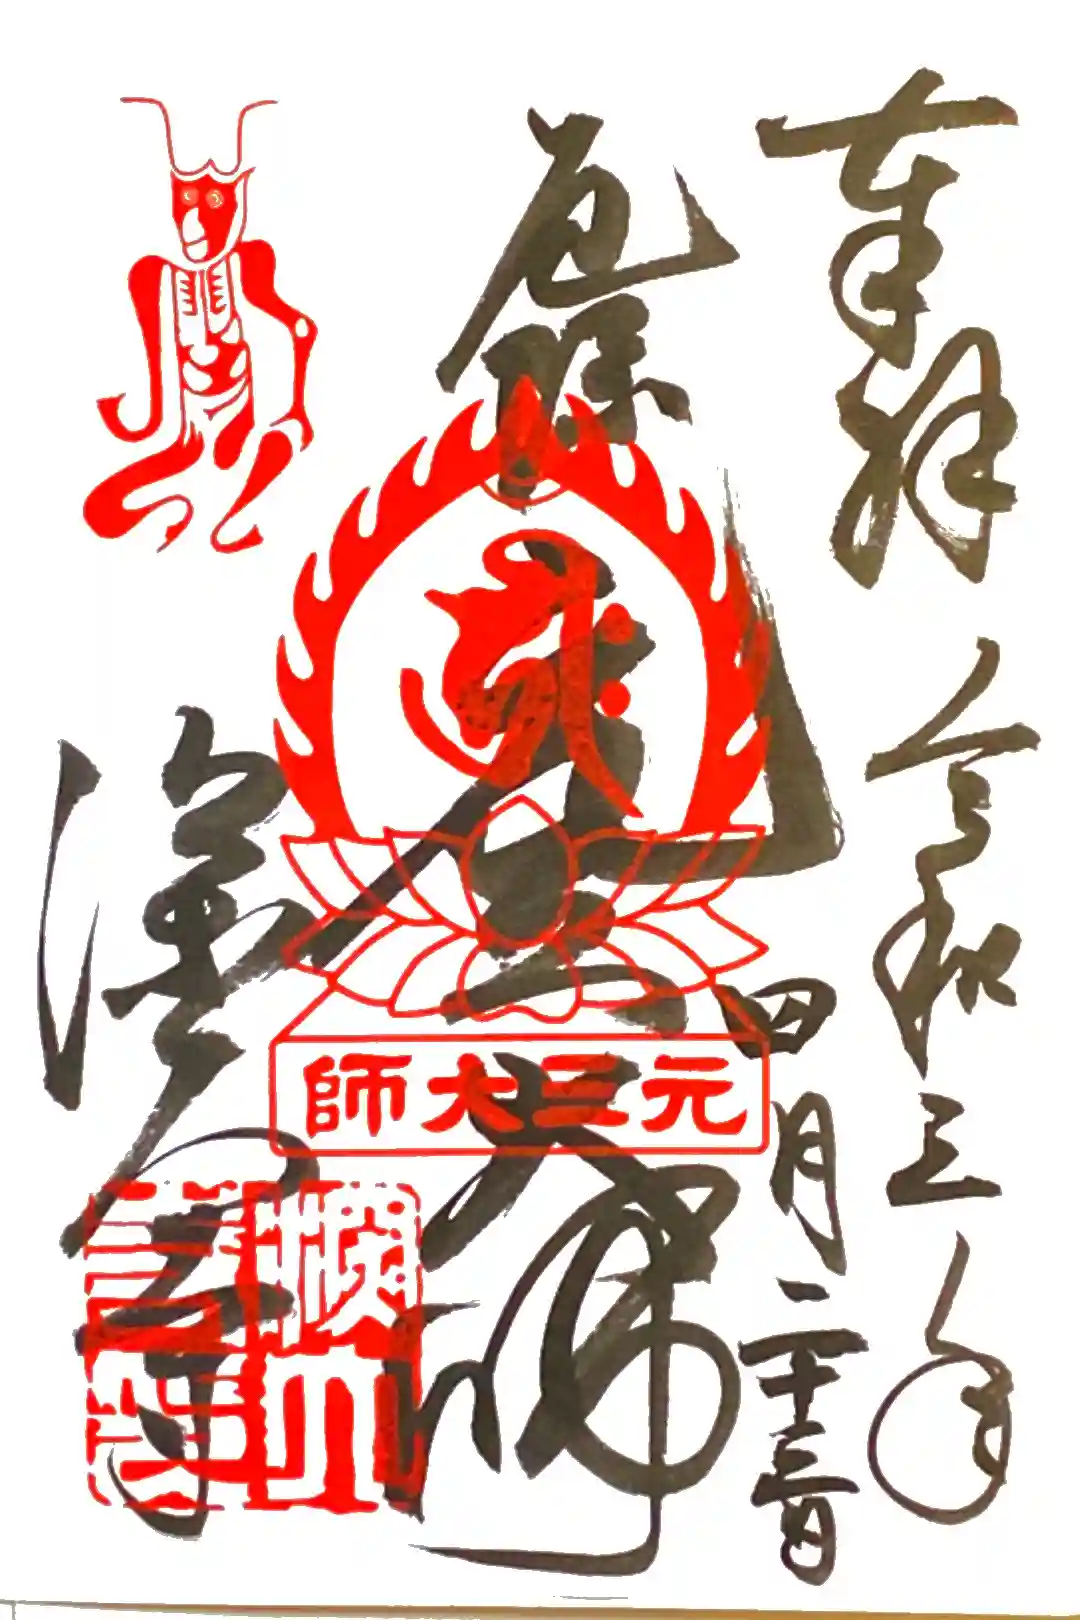 奉拝
令和三年
四月二十三日
厄除
元三大師
元三大師